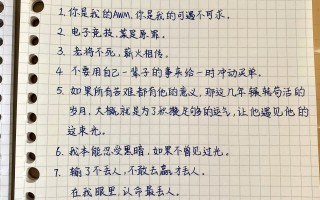 1. 你是我的AWM, 你是我的可遇不可求。
2. 电子竞技, 菜是原罪。
3. 老将不死, 薪火相传。
4. 不要用自己一辈子的事来给一时冲动买单。
5. 如果所有苦难都有他的意义, 那这几年辗转苟活的
岁月, 大概就是为了积攒足够的运气, 让他遇见他的
这束光。
6. 我本能忍受黑暗, 如果不曾见过光。
7. 输了不丢人, 不敢去赢才丢人。
在我眼里, 认命最丢人。